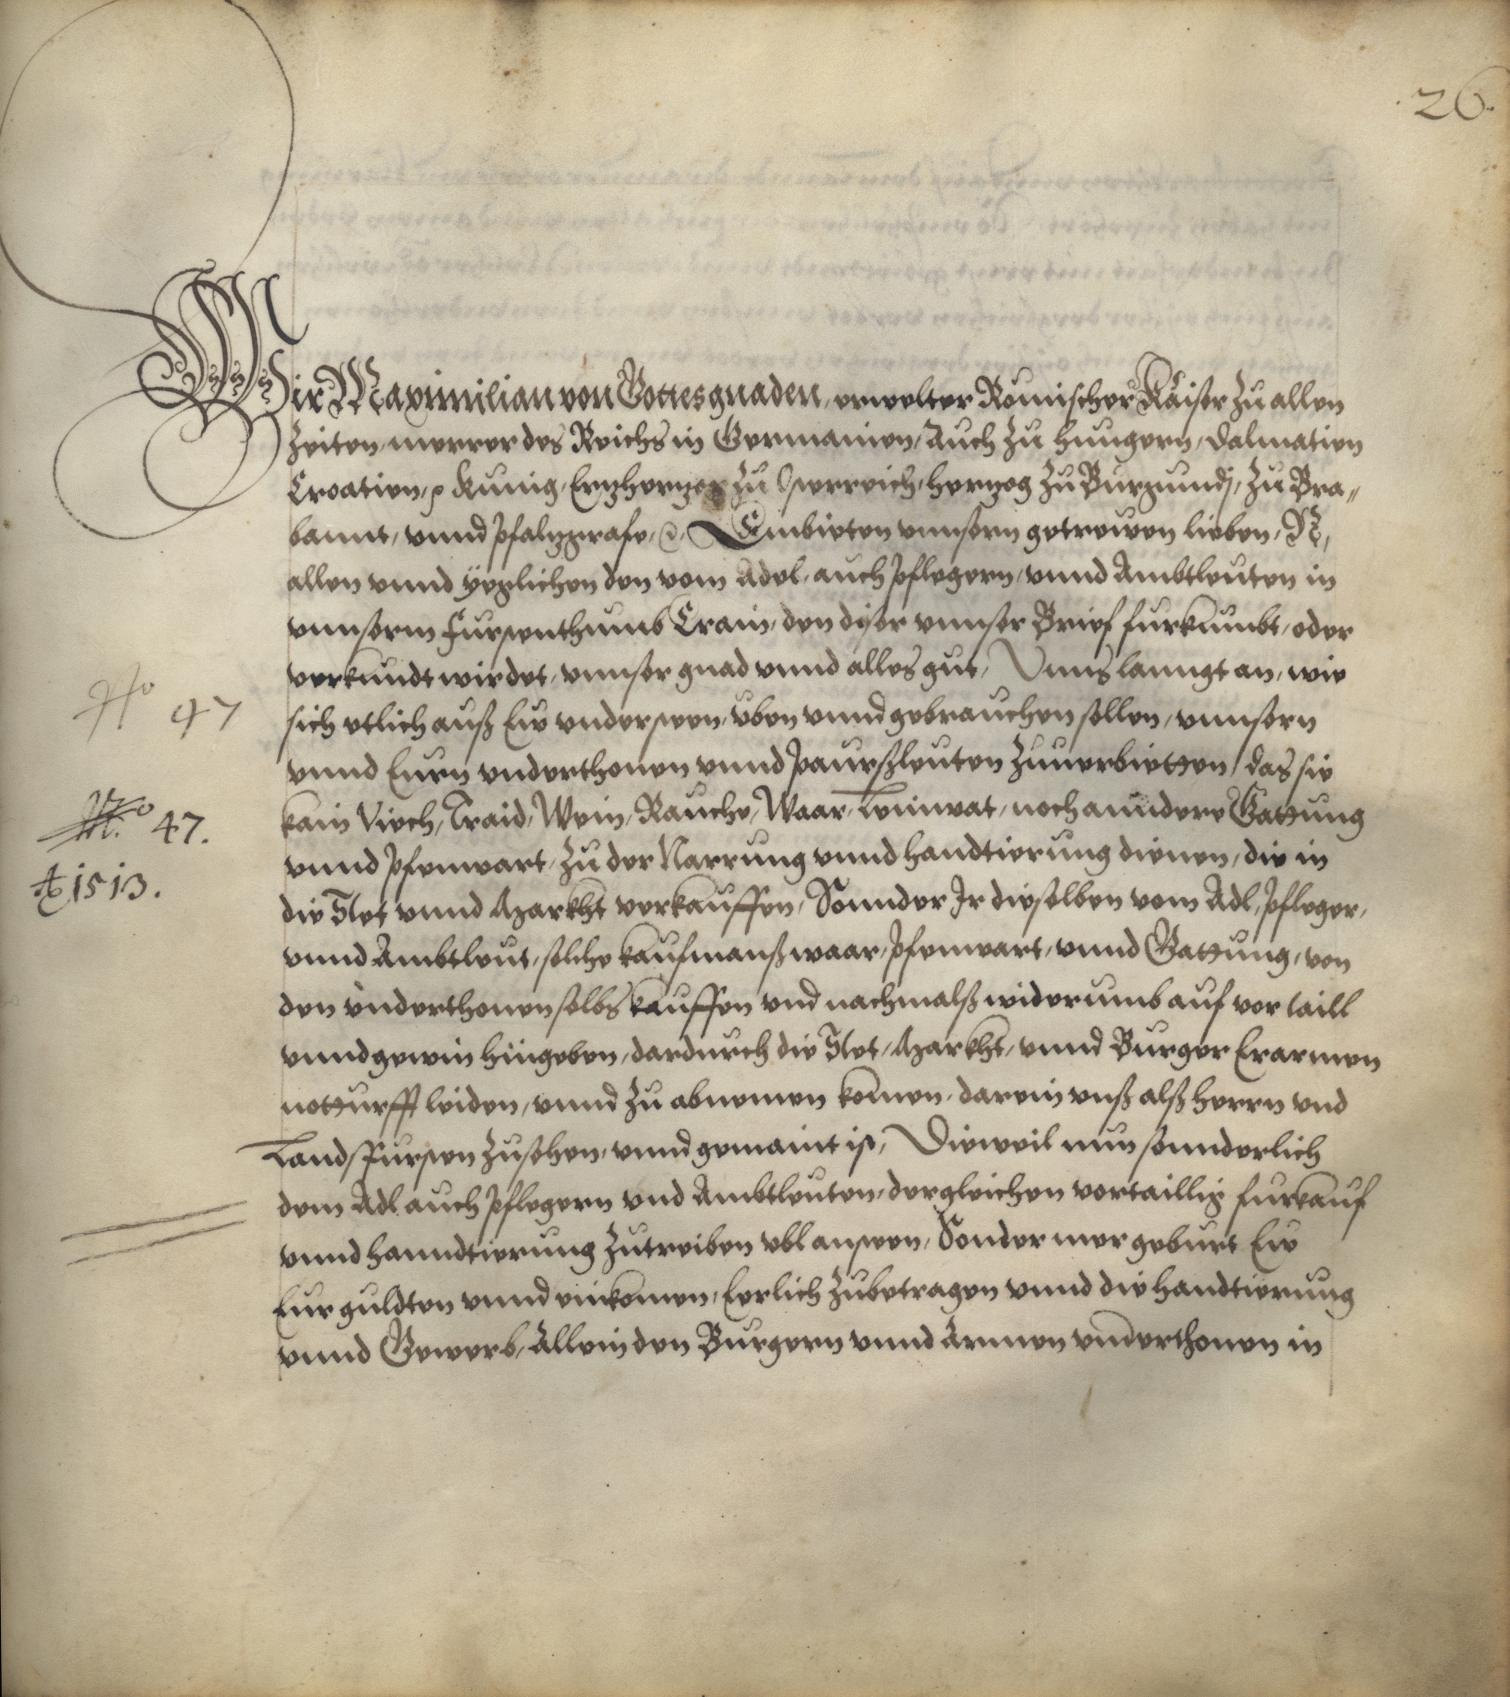 26.
Wir Maximilian von Gottes gnaden, erwelter Römischer Kaiser Zu allen
Zeiten merrer des Reichs in Germanien, Auch Zu Hungern, Dalmatien
Croatien, Kunig, Ertzhertzog Zu Osterreich, Hertzog Zu Burgundj, Zu Bra„
bannt, vnnd Pfaltzgrafe, Embieten vnnsern getrewen lieben, N,
allen vnnd yeglichen den vom Adel, auch Pflegern, vnnd Ambtleuten in
vnnserm Furstenthumb Crain, den diser vnnser Brief furkumbt, oder
verkundt wirdet, vnnser gnad vnnd alles gut, Vnns lanngt an, wie
sich etlich auß Eü vndersteen, üben vnnd gebrauchen sollen, vnnsern
vnnd Eurn vnderthonen vnnd Paurßleuten Zuuerbietten, das sie
kain Viech, Traid, Wein, Rauche, Waar, Leinwat, noch anndere Gattung
vnnd Pfenwart, Zu der Narrung vnnd handtierung dienen, die in
die Stet vnnd Markht verkauffen, Sonnder Ir dieselben vom Adl, Pfleger,
vnnd Ambtleut, solche kaufmanß waar, Pfenwart, vnnd Gattung, von
den vnderthonen selbs kauffen vnd nachmalß widerumb auf vortaill
vnnd gewin hingeben, dardurch die Stet, Markht, vnnd Burger Erarmen
notturfft leiden, vnnd Zu abnemen komen, darein vnß alß Herrn vnd
Landsfursten Zusehen, vnnd gemaint ist, Dieweil nun sonnderlich
dem Adl auch Pflegern vnd Ambtleuten, dergleichen vortaillig furkauf
vnnd hanndtierung Zutreiben vbl ansteen, Sonder mer geburt Eü
Eur guldten vnnd einkomen, Eerlich Zubetragen vnnd die handtierung
vnnd Gewerb, Allein den Burgern vnnd Armen vnderthonen in
No 47
No 47.
Ao 1513.